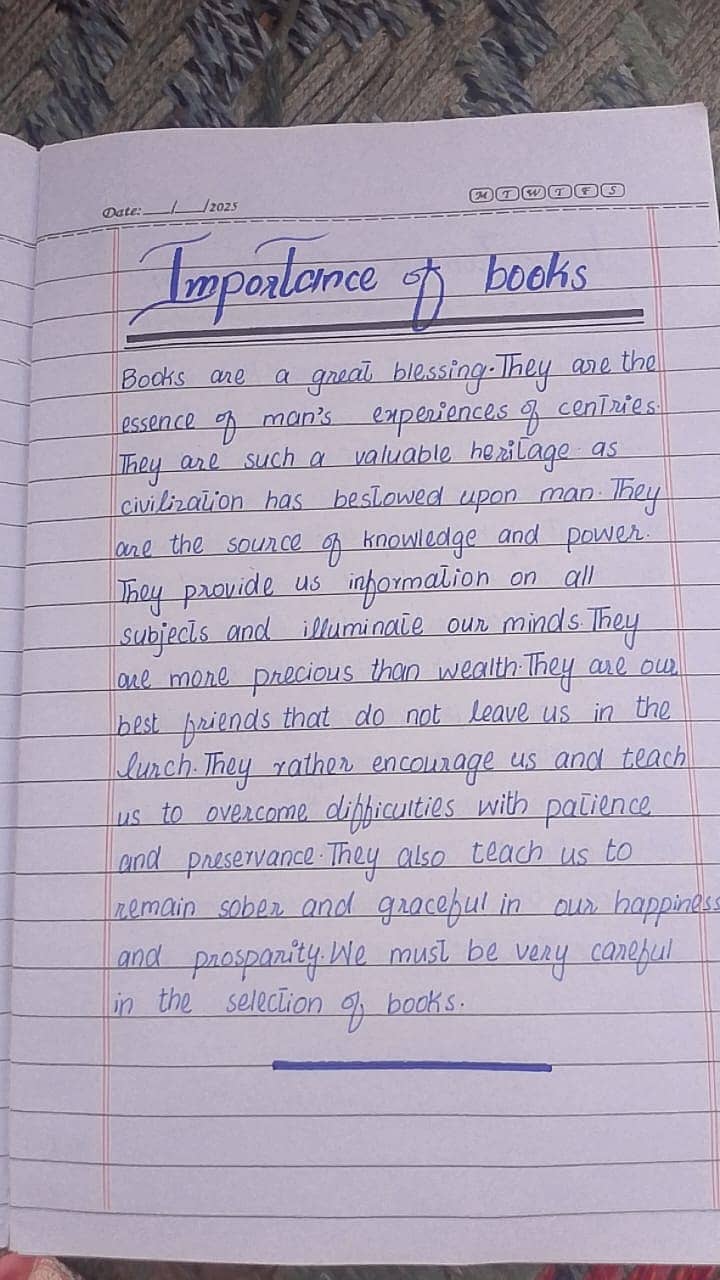 Date: __/__/2025
M T W T F S
Importance of books
Books are a great blessing. They are the
essence of man's experiences of centries.
They are such a valuable heritage as
civilization has bestowed upon man. They
are the source of knowledge and power.
They provide us information on all
subjects and illuminate our minds. They
are more precious than wealth. They are our
best friends that do not leave us in the
lurch. They rather encourage us and teach
us to overcome difficulties with patience
and preservance. They also teach us to
remain sober and graceful in our happiness
and prosparity. We must be very careful
in the selection of books.